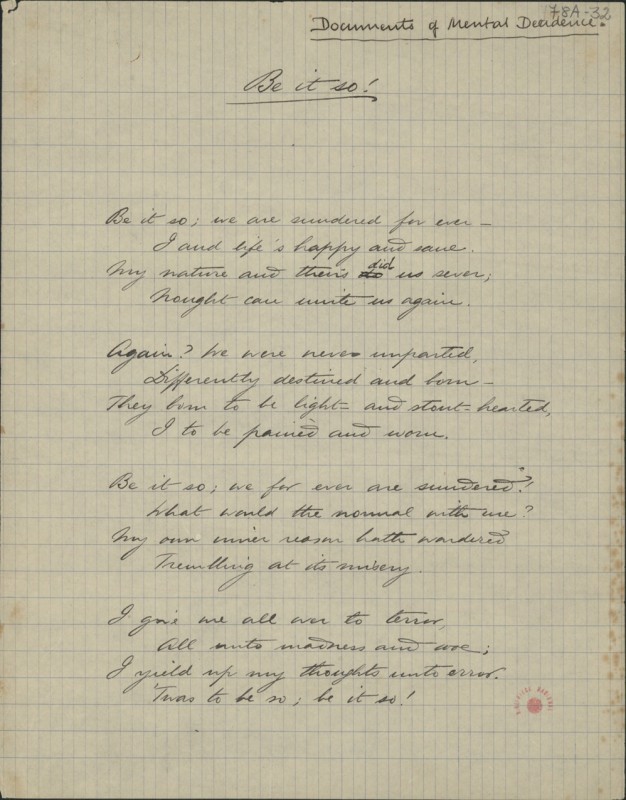 78A-32
Documents of Mental Decadence.
Be it so!
Be it so; we are sundered for ever –
I and life's happy and sane.
My nature and theirs did us sever;
Nought can unite us again.
Again? We were never unparted,
Differently destined and born –
They born to be light- and stout-hearted,
I to be pained and worn.
Be it so; we for ever are sundered!
What would the normal with me?
My own inner reason hath wandered
Trembling at its misery.
I give me all over to terror,
All unto madness and woe;
I yield up my thoughts unto error.
'Twas to be so; be it so!